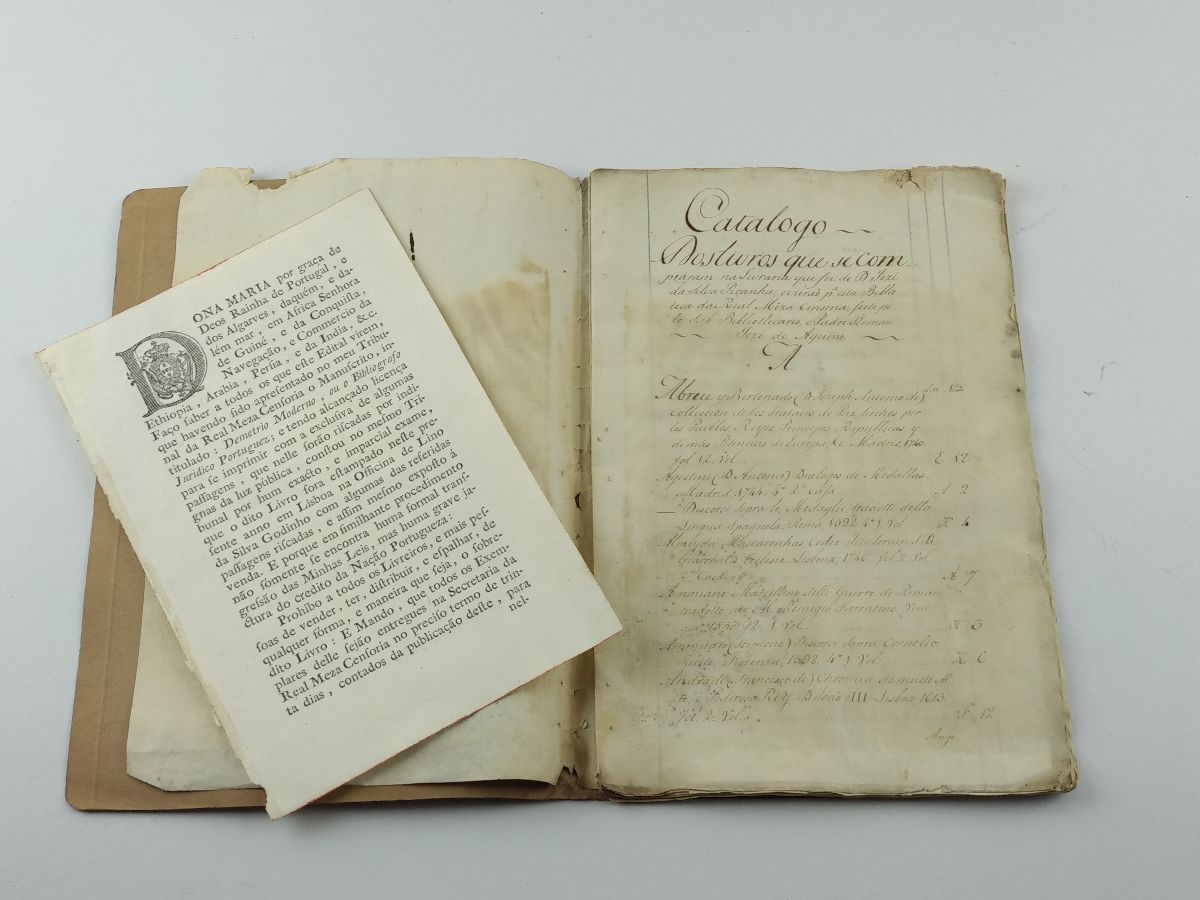 DONA MARIA por graça de
Deos Rainha de Portugal, e
dos Algarves, daquém, e da-
lém mar, em Africa Senhora
de Guiné, e da Conquista,
Navegação, e Commercio da
Ethiopia, Arabia, Persia, e da India, &c.
Faço saber a todos os que este Edital virem,
que havendo sido apresentado no meu Tribu-
nal da Real Meza Censoria o Manuscrito, in-
titulado: Demetrio Moderno, ou o Bibliografo
Juridico Portuguez; e tendo alcançado licença
para se imprimir com a exclusiva de algumas
passagens, que nelle forão riscadas por indi-
gnas da luz pública, constou no mesmo Tri-
bunal por hum exacto, e imparcial exame,
que o dito Livro fora estampado neste pre-
sente anno em Lisboa na Officina de Lino
da Silva Godinho com algumas das referidas
passagens riscadas, e assim mesmo exposto á
venda. E porque em similhante procedimento
não sómente se encontra huma formal trans-
gressão das Minhas Leis, mas huma grave ja-
ctura do credito da Nação Portugueza:
Prohibo a todos os Livreiros, e mais pes-
soas de vender, ter, distribuir, e espalhar, de
qualquer fórma, e maneira que seja, o sobre-
dito Livro: E Mando, que todos os Exem-
plares delle sejão entregues na Secretaria da
Real Meza Censoria no preciso termo de trin-
ta dias, contados da publicação deste, para
nel-
Catalogo
Dos livros que se com
práram na Livraria que foi de D. Jozé
da Silva Peçanha, e virão pª esta Biblio
teca da Real Meza Censoria, feito pe
lo Bibliothecario, o Padre
Jozé de Aquino
A
Abreu y Bertanado (D. Joseph Antonio de)
Colleccion de los Tratados de Paz, hechos por
los Pueblos, Reyes, Principes, Republicas, y
demas Potencias de Europa, &c. Madrid, 1740.
fol. 12. Vol. E 12
Agustin (D. Antonio) Dialogos de Medallas
Madrid 1744. 4º A 2
Discorsi sopra le Medaglie tradotti dalla
Lingua Spagnola. Roma, 1592. 4º 1 Vol H 4
Almeyda Mascarenhas Codex Titulorum S.
Ecclesia Lisbona, 1746. fol. 2 Vol
A 7
Ammiano Marcellino delle Guerre de Romani
tradotto per M. Remigio Fiorentino. Vene
1 Vol
Ammirato (Scipione) Discorsi sopra Cornelio
Tacito. Fiorenza, 1598. 4º 1 Vol
Andrade (Francisco de) Chronica do muito Al
to Rey D. João III. Lisboa 1613.
fol. 2. Vol. 12
Ange